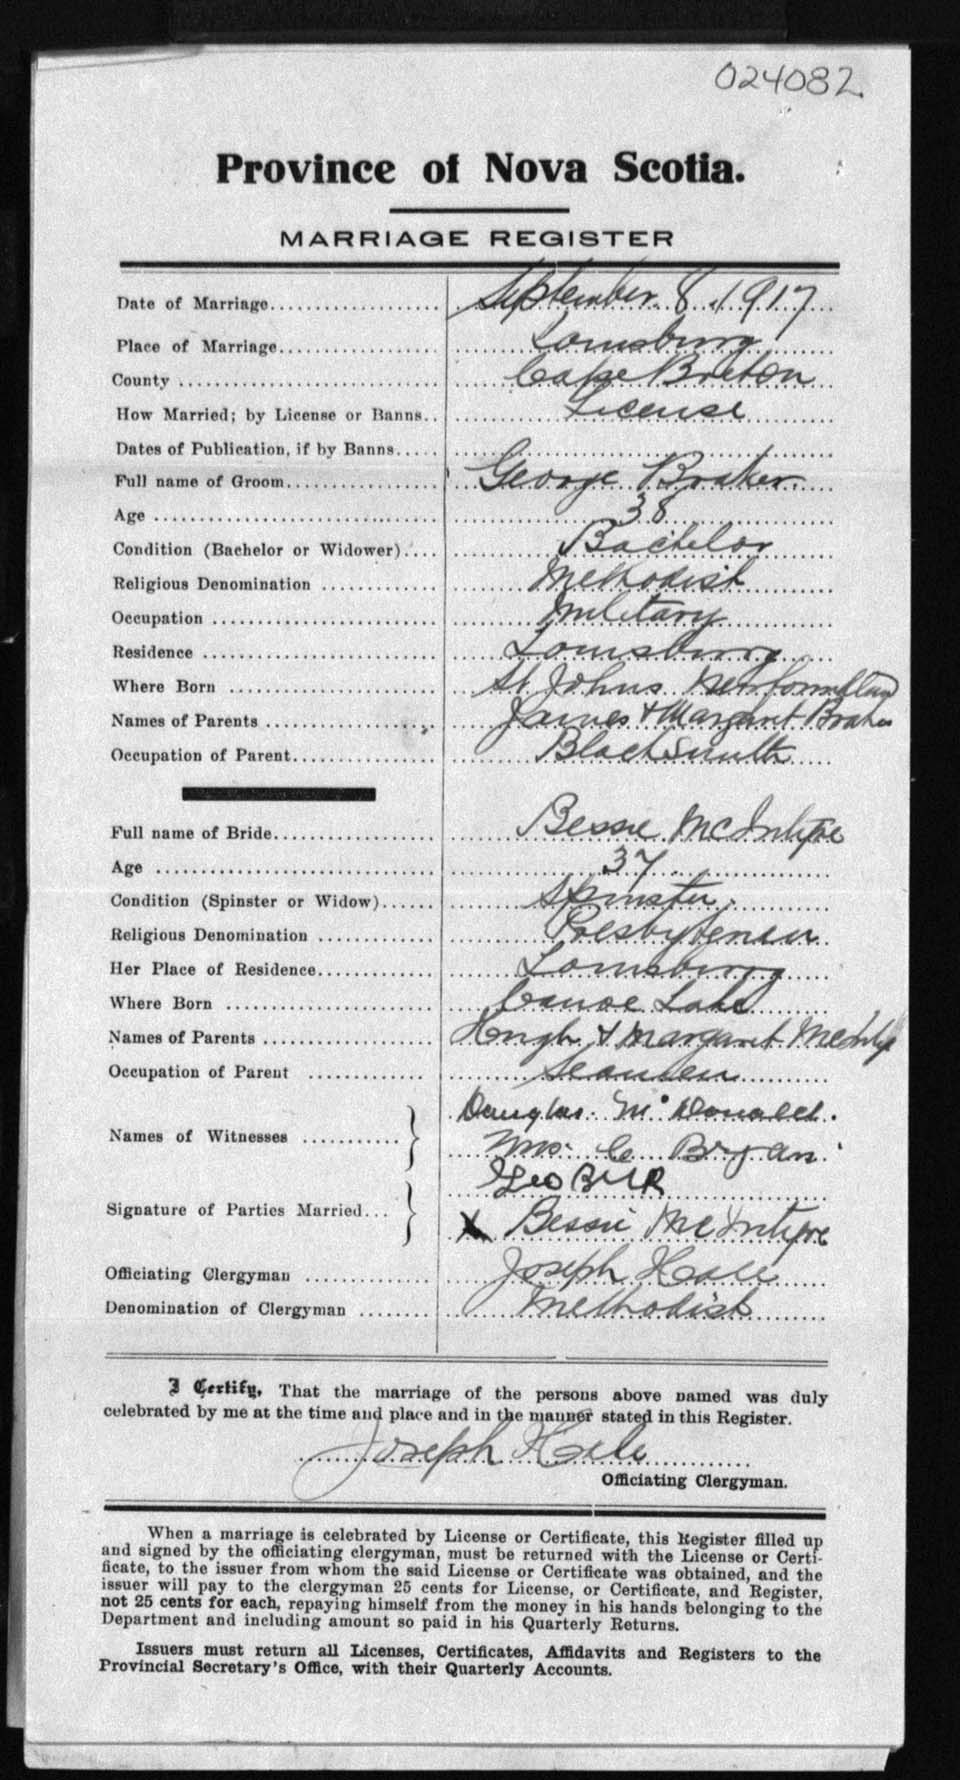 024082
Province of Nova Scotia.
MARRIAGE REGISTER
Date of Marriage September 8, 1917
Place of Marriage Louisburg
County Cape Breton
How Married; by License or Banns License
Dates of Publication, if by Banns
Full name of Groom George Braker
Age 38
Condition (Bachelor or Widower) Bachelor
Religious Denomination Methodist
Occupation Military
Residence Louisburg
Where Born St Johns Newfoundland
Names of Parents James & Margaret Braker
Occupation of Parent Blacksmith
Full name of Bride Bessie McIntyre
Age 37
Condition (Spinster or Widow) Spinster
Religious Denomination Presbyterian
Her Place of Residence Louisburg
Where Born Canoe Lake
Names of Parents Hugh & Margaret McIntyre
Occupation of Parent Seaman
Names of Witnesses Douglas McDonald.
Mrs. C Bryan
Signature of Parties Married Geo
X Bessie McIntyre
Officiating Clergyman Joseph Hale
Denomination of Clergyman Methodist
I Certify, That the marriage of the persons above named was duly
celebrated by me at the time and place and in the manner stated in this Register.
Joseph Hale
Officiating Clergyman.
When a marriage is celebrated by License or Certificate, this Register filled up
and signed by the officiating clergyman, must be returned with the License or Certi-
ficate, to the issuer from whom the said License or Certificate was obtained, and the
issuer will pay to the clergyman 25 cents for License, or Certificate, and Register,
not 25 cents for each, repaying himself from the money in his hands belonging to the
Department and including amount so paid in his Quarterly Returns.
Issuers must return all Licenses, Certificates, Affidavits and Registers to the
Provincial Secretary's Office, with their Quarterly Accounts.